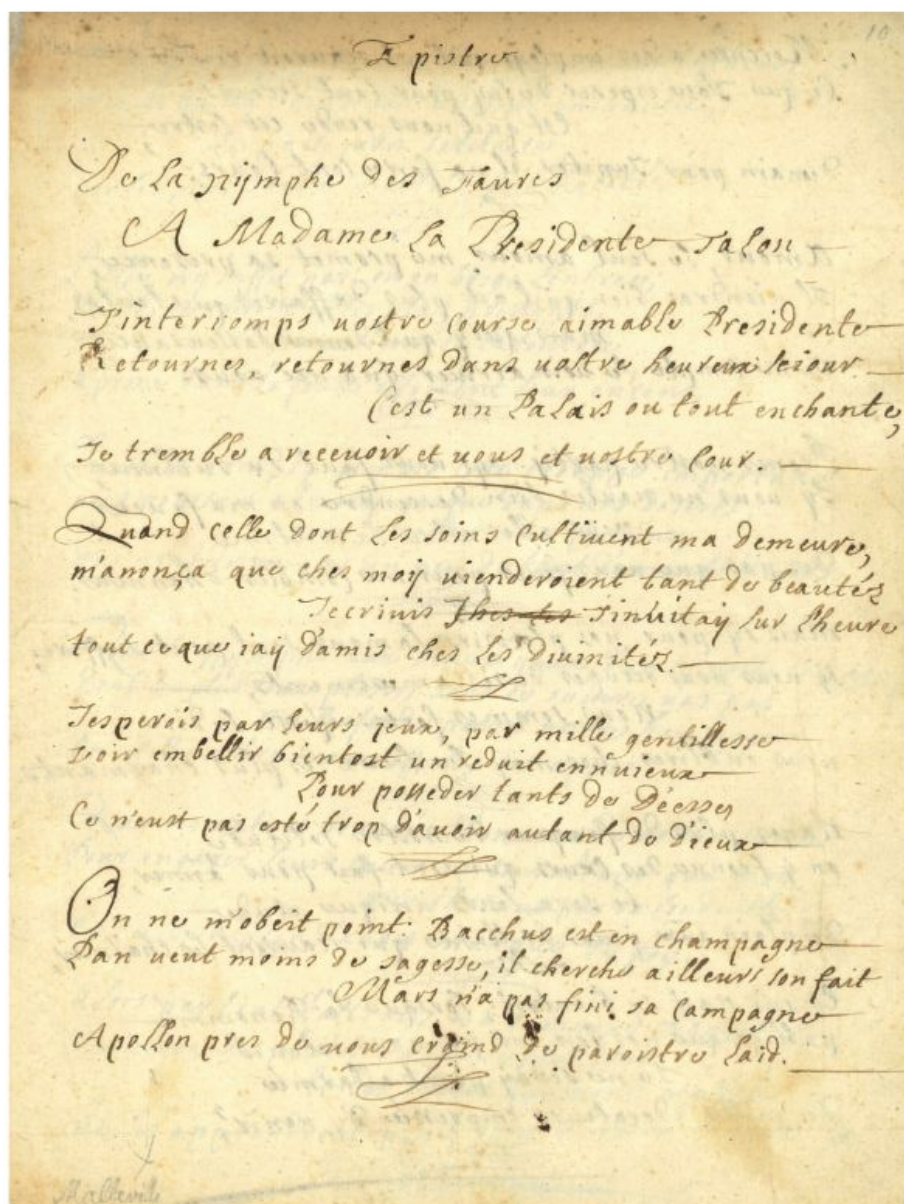 10
Epistre
De La nymphe des Faures
A Madame La Presidente Talon
J'interromps vostre Course aimable Presidente
Retournes, retournes dans vostre heureux seiour
C'est un Palais ou tout enchante,
Je tremble a recevoir et vous et vostre Cour.
Quand celle dont Les soins Cultivent ma demeure,
m'anonça que ches moy vienderoient tant de beautéz
J'ecrivis J'invitay sur L'heure
tout ce que iay d'amis ches Les divinitéz.
J'esperois par leurs jeux, par mille gentillesse
voir embellir bientost un reduit ennuieux
Pour posseder tants de Déesses
Ce n'eust pas esté trop d'avoir autant de dieux
On ne m'obeit point: Bacchus est en champagne
Pan veut moins de sagesse, il cherche ailleurs son fait
Mars n'a pas fini sa Campagne
Apollon pres de vous Craind de paroistre Laid.
Malleville